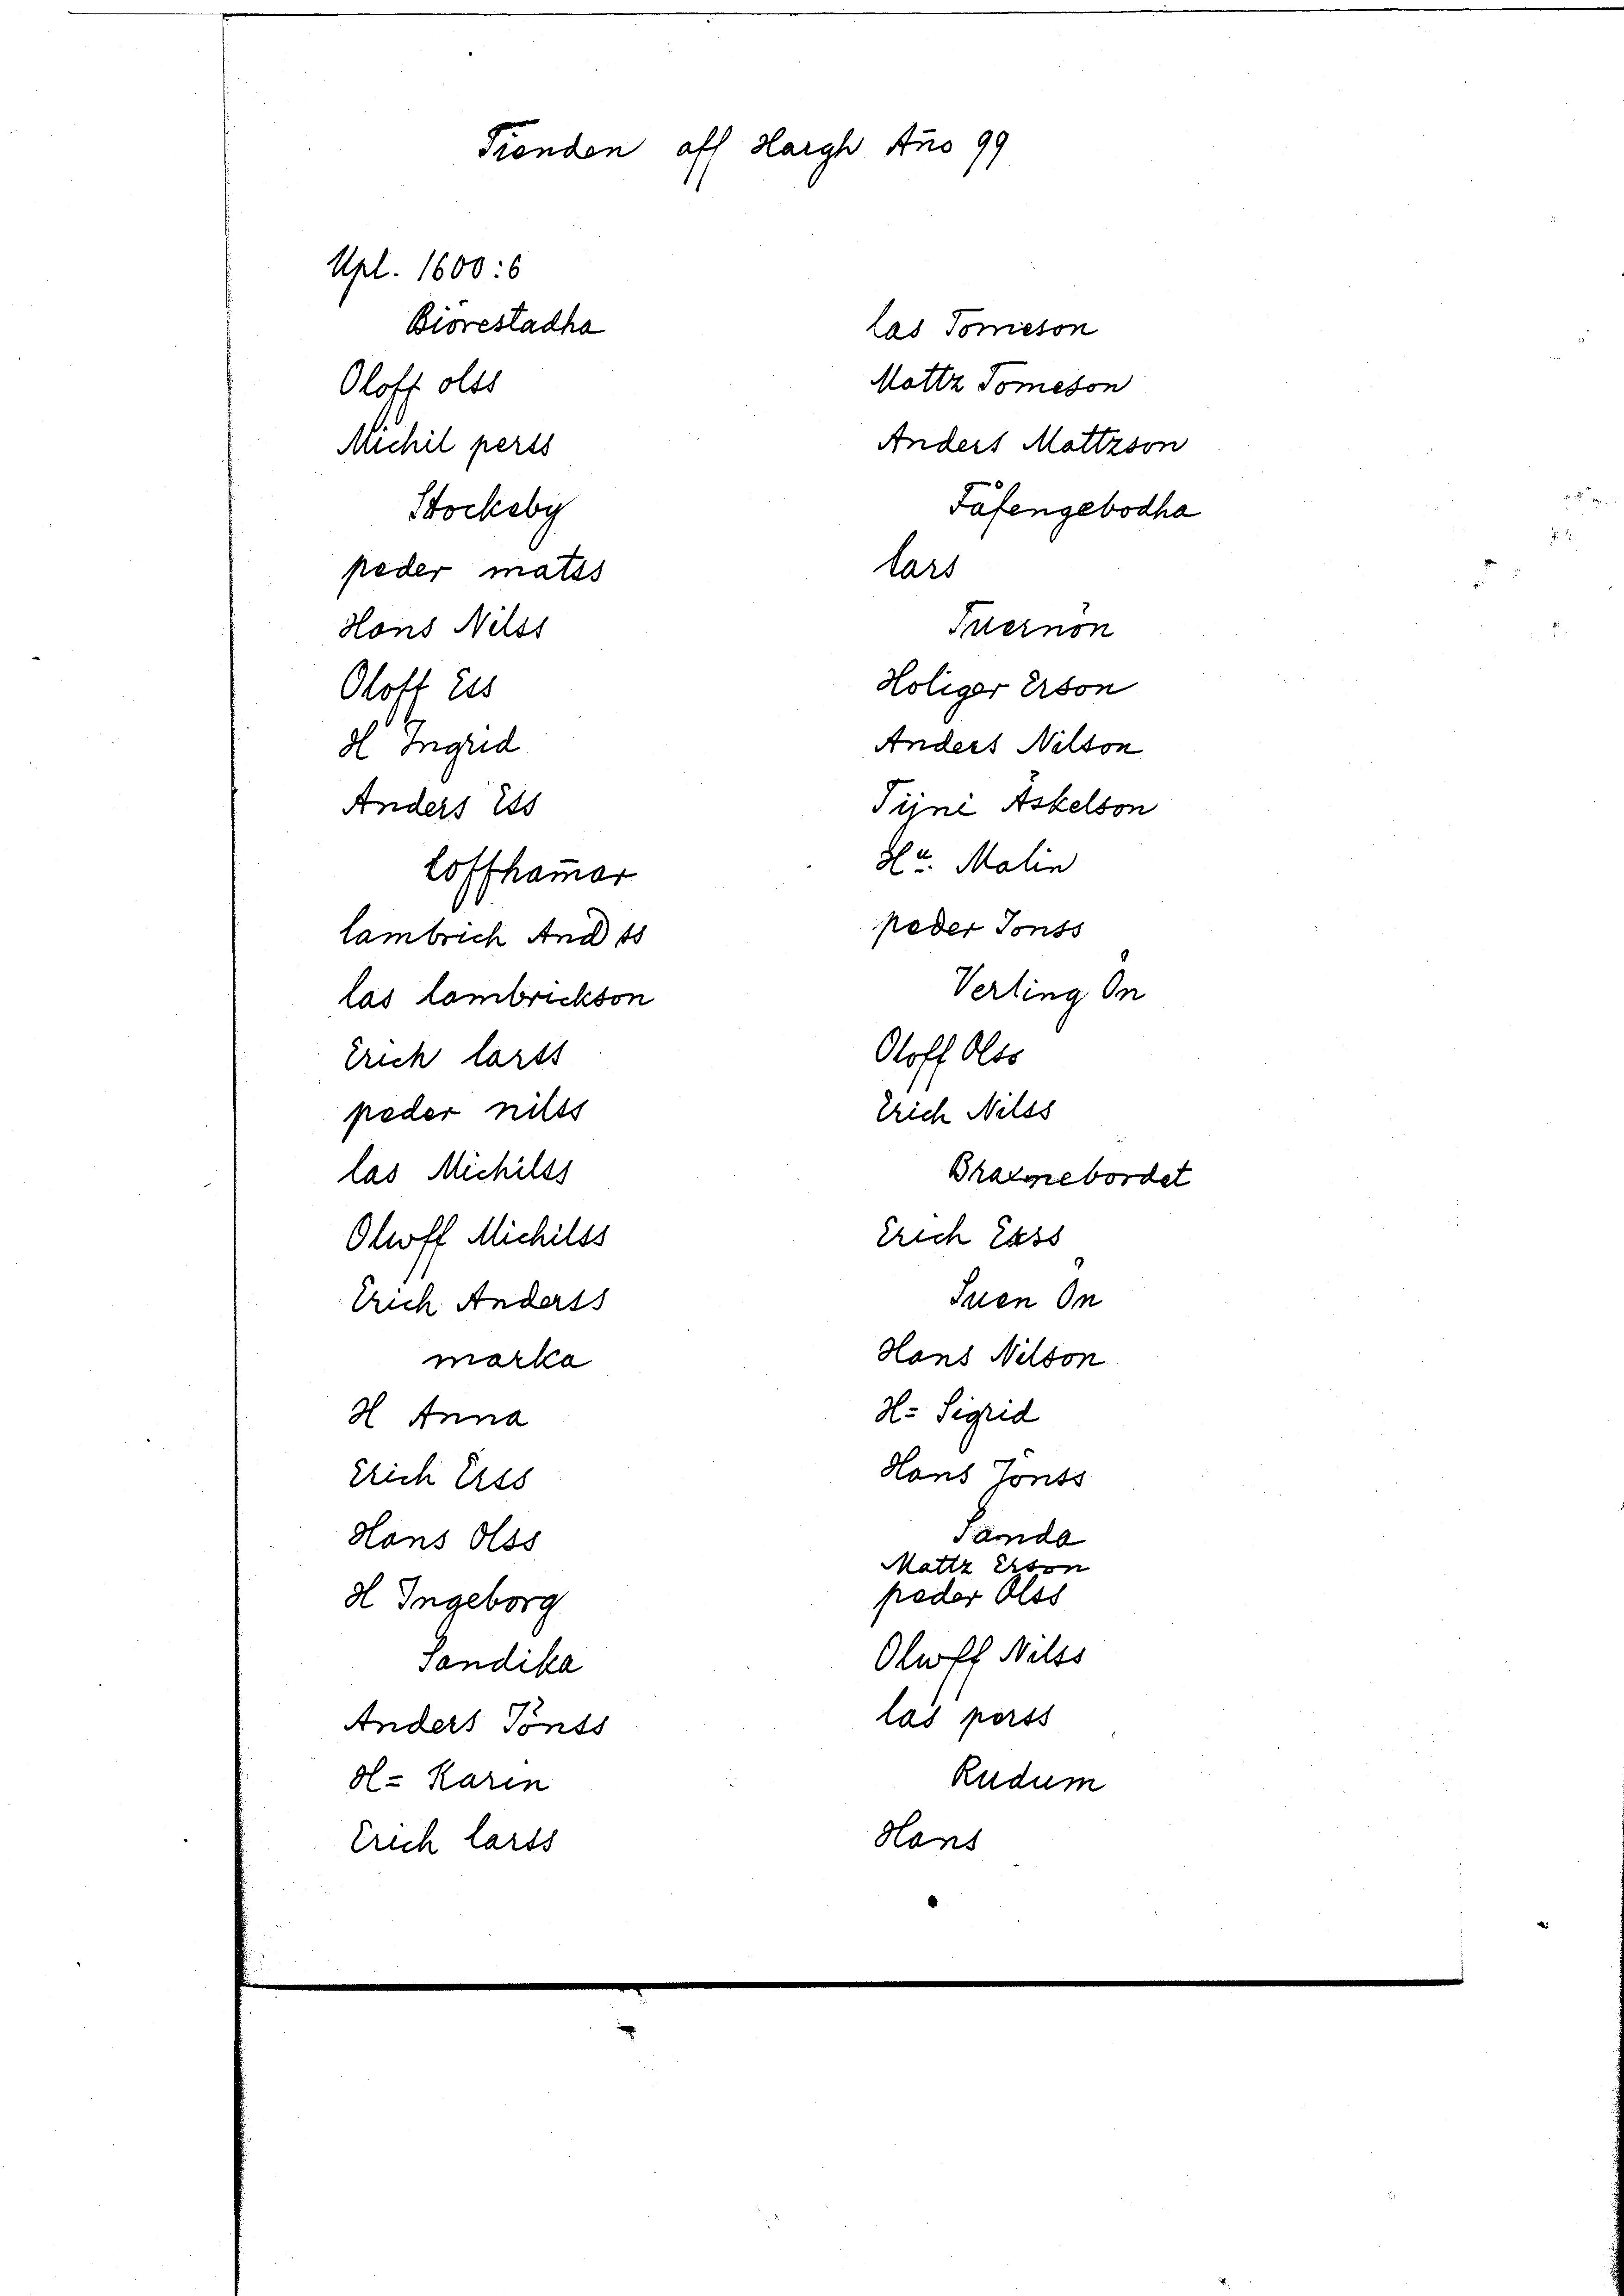 Tienden aff Hargh Año 99
Upl. 1600:6
Biörestadha
Oloff olss
Michil perss
Stockeby
peder matss
Hans Nilss
Oloff Ess
H Ingrid
Anders Ess
Loffham̄ar
lambrich And ss
las lambrickson
Erich larss
peder nilss
las Michilss
Oluoff Michilss
Erich Anderss
marka
H Anna
Erich Erss
Hans Olss
H Ingeborg
Sandika
Anders Jönss
H= Karin
Erich larss
las Tomeson
Mattz Tomeson
Anders Mattzson
Fåfengebodha
lars
Tuernön
Holiger Erson
Anders Nilson
Tijni Äskelson
Hu. Malin
peder Jonss
Verling Ön
Oloff Olss
Erich Nilss
Erich Erss
Suen Ön
Hans Nilson
H= Sigrid
Hans Jönss
Sanda
Mattz Erson
peder Olss
Oluoff Nilss
las perss
Rudum
Hans